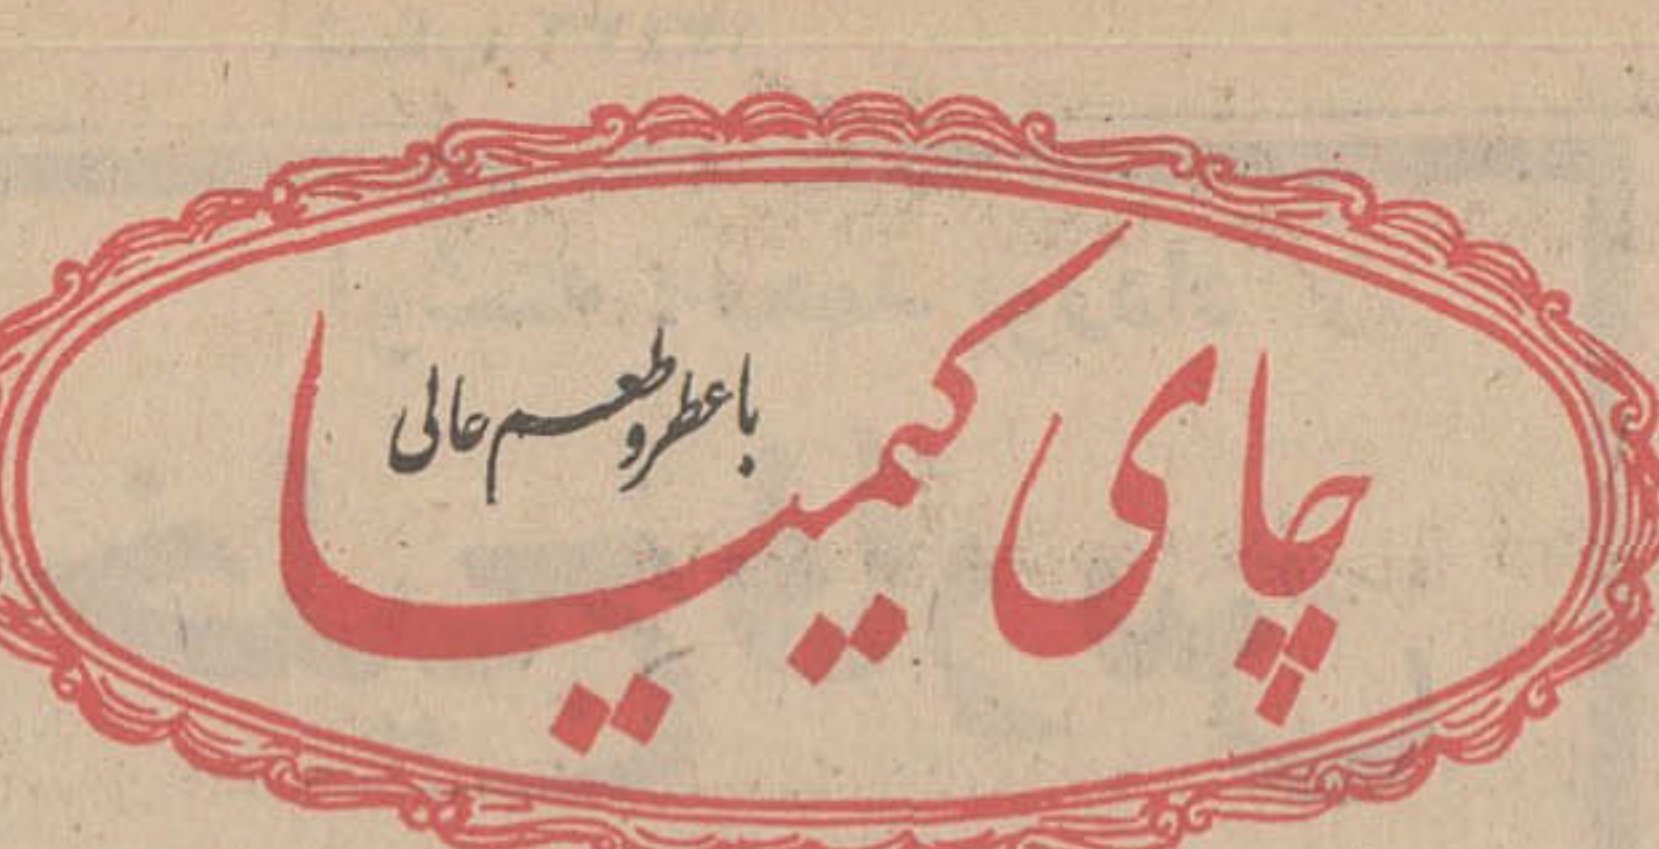 چای کیمیا
با عطر و طعم عالی